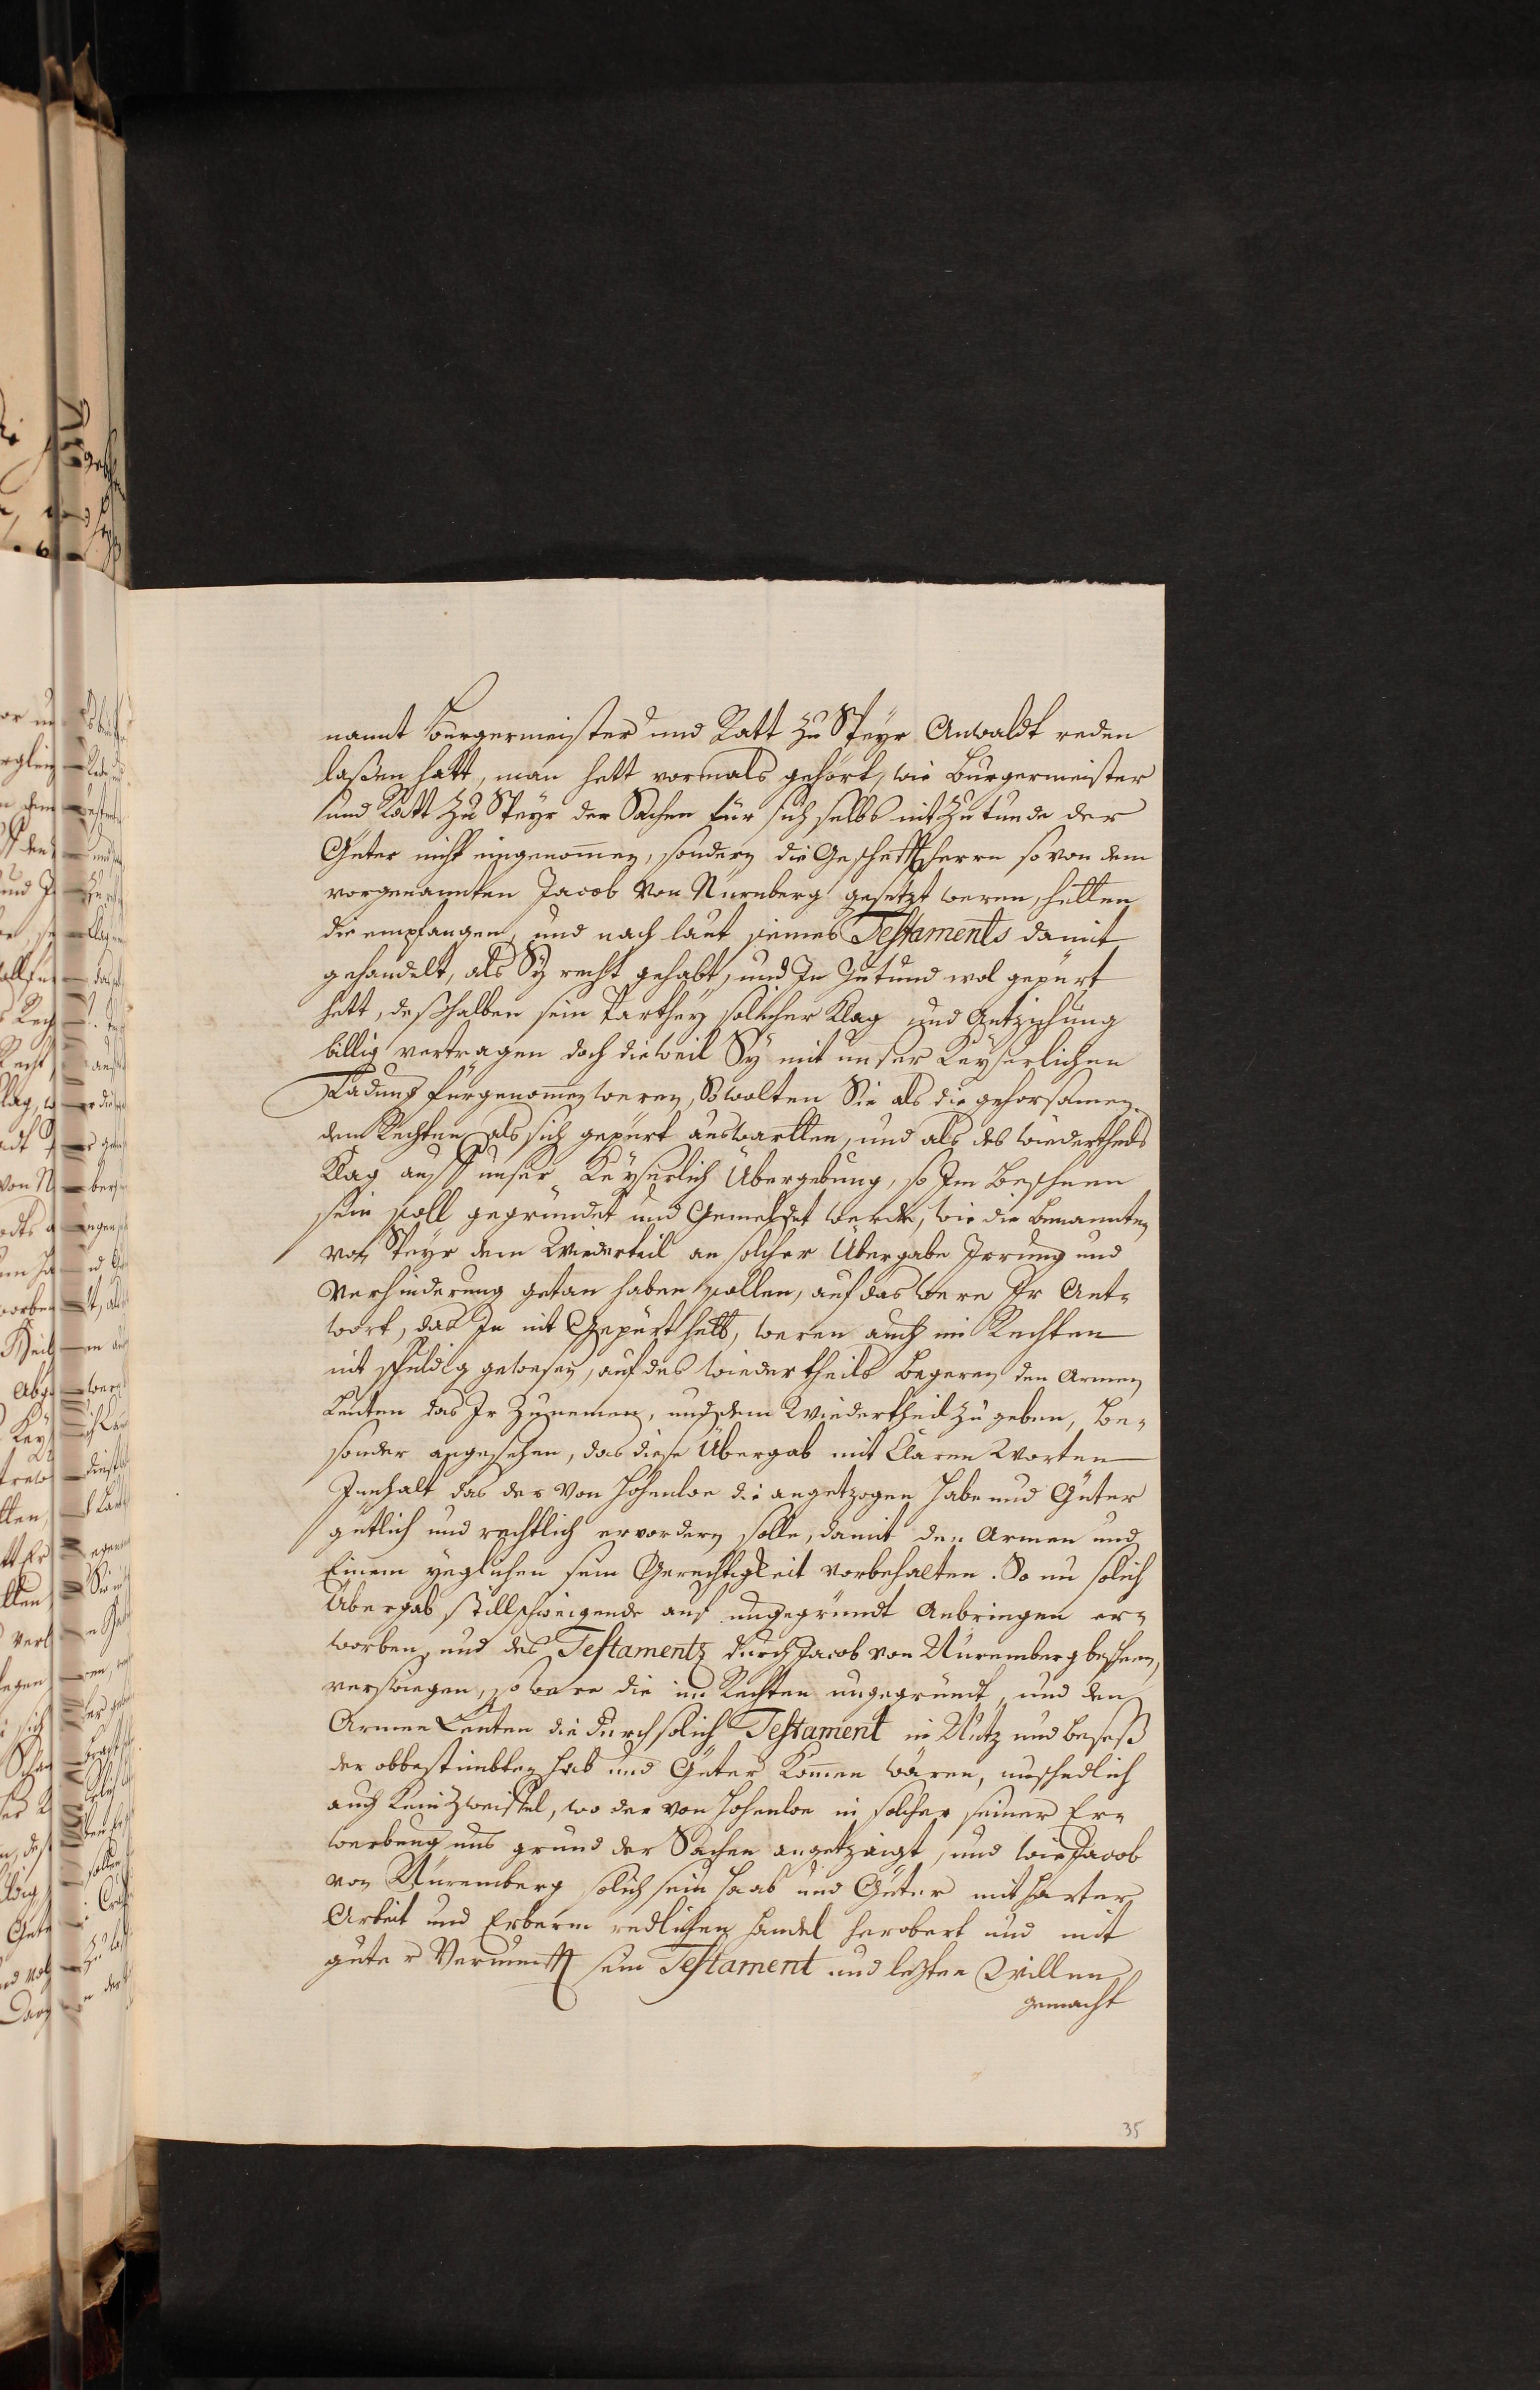 nannt Burgermeister und Ratt zu Speyr Anwaldt reden
laßen hatt, man hett vormals gehört, wie Burgermeister
und Ratt zu Speyr der Sachen für sich selbs nit zutunde der
Güter nicht eingenommen, sondern die Gescheffftherrn so von dem
vorgenannten Jacob von Nürnberg gesetzt weren, hetten
die empfangen, und nach laut seines Testaments damit
gehandelt, als Sy recht gehabt, und In Zutund wol gepürt
hett, deßhalben sein Parthey solicher Klag und Antziehung
billig vertragen doch dieweil Sy mit unser Keyserlichen
Ladung fürgenommen weren, So wolten Sie als die gehorsamen
dem Rechten als sich gepürt auswartten, und als des wiedertheils
Klag auff unser Keyserlich Übergebung, so Im Bescheen
sein soll gegründet und Gemeldet werde, wie die benannten
von Speyr dem Wiederteil an solcher Übergabe Irrung und
Verhinderung getan haben sollen, auf das were Ir Ant-
wort, das In nit Gepürt hett, weren auch im Rechten
nit schuldig gewesen, auf des wiedertheils begeren den Armen
Leuten das Ir zunemen, und dem Wiedertheil zu geben, Be-
sonder angesehen, das diese Übergab mit Claren Worten
Innhalt das der von Hohenloe die angetzogen Habe und Güter
gütlich und rechtlich ervordern solle, damit den Armen und
Einem yeglichen sein Gerechtigkeit vorbehalten. So nu solich
Übergab stillschweigende auf ungegründt Anbringen er-
worben, und des Testamentz durch Jacob von Nüremberg bescheen,
verswiegen, so were die im Rechten ungegründt, und den
Armen Leuten die durch solich Testament in Nutz und beseß
der obbestimbten Hab und Güter kommen wären, unschedlich
auch kein Zweiffel, wo der von Hohenloe in solcher seiner Er-
werbung uns grund der Sachen angetzaigt, und wie Jacob
von Nüremberg solich sein Haab und Güter mit harter
Arbeit und Erberm redlichen Handel herobert und mit
guter Vernunfft sein Testament und letzten Willen
gemacht
35